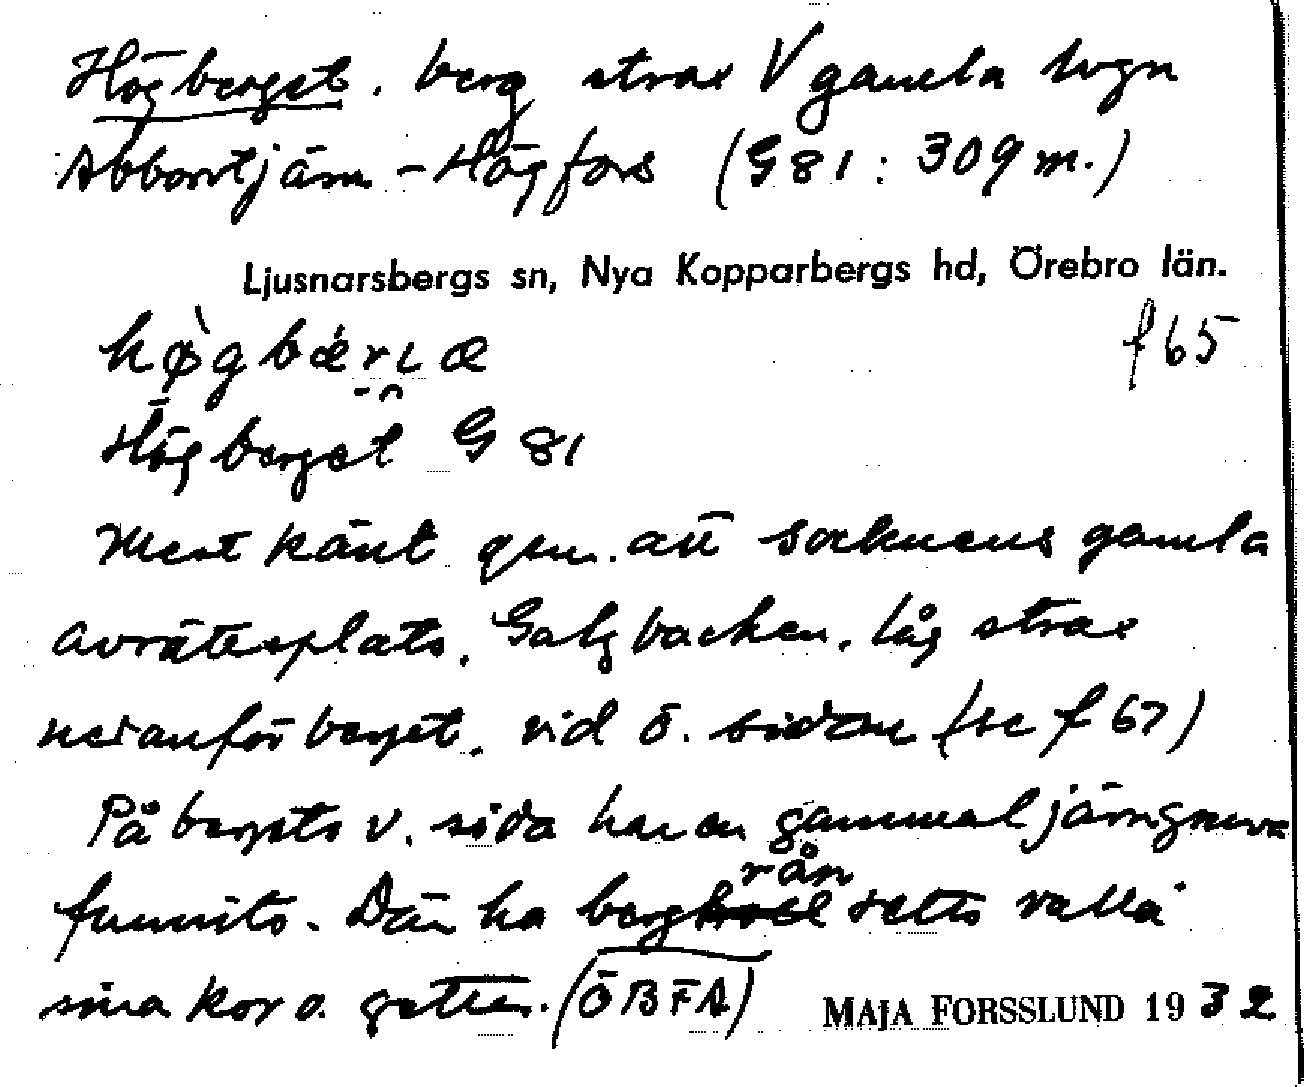 Högberget. berg strax V gamla vägen
Abborrtjärn - Högfors (G81: 309 m.)
Ljusnarsbergs sn, Nya Kopparbergs hd, Örebro län.
hø̀gbǽrıæ
f65
Högberget G 81
Mest känt gm. att socknens gamla
avrättsplats, Galgbacken, låg strax
nedanför berget, vid ö. sidan (se f 67)
På bergets v. sida har en gammal järngruva
rån
funnits. Där ha berg setts valla
sina kor o. getter. (ÖBFA)
MAJA FORSSLUND 1932